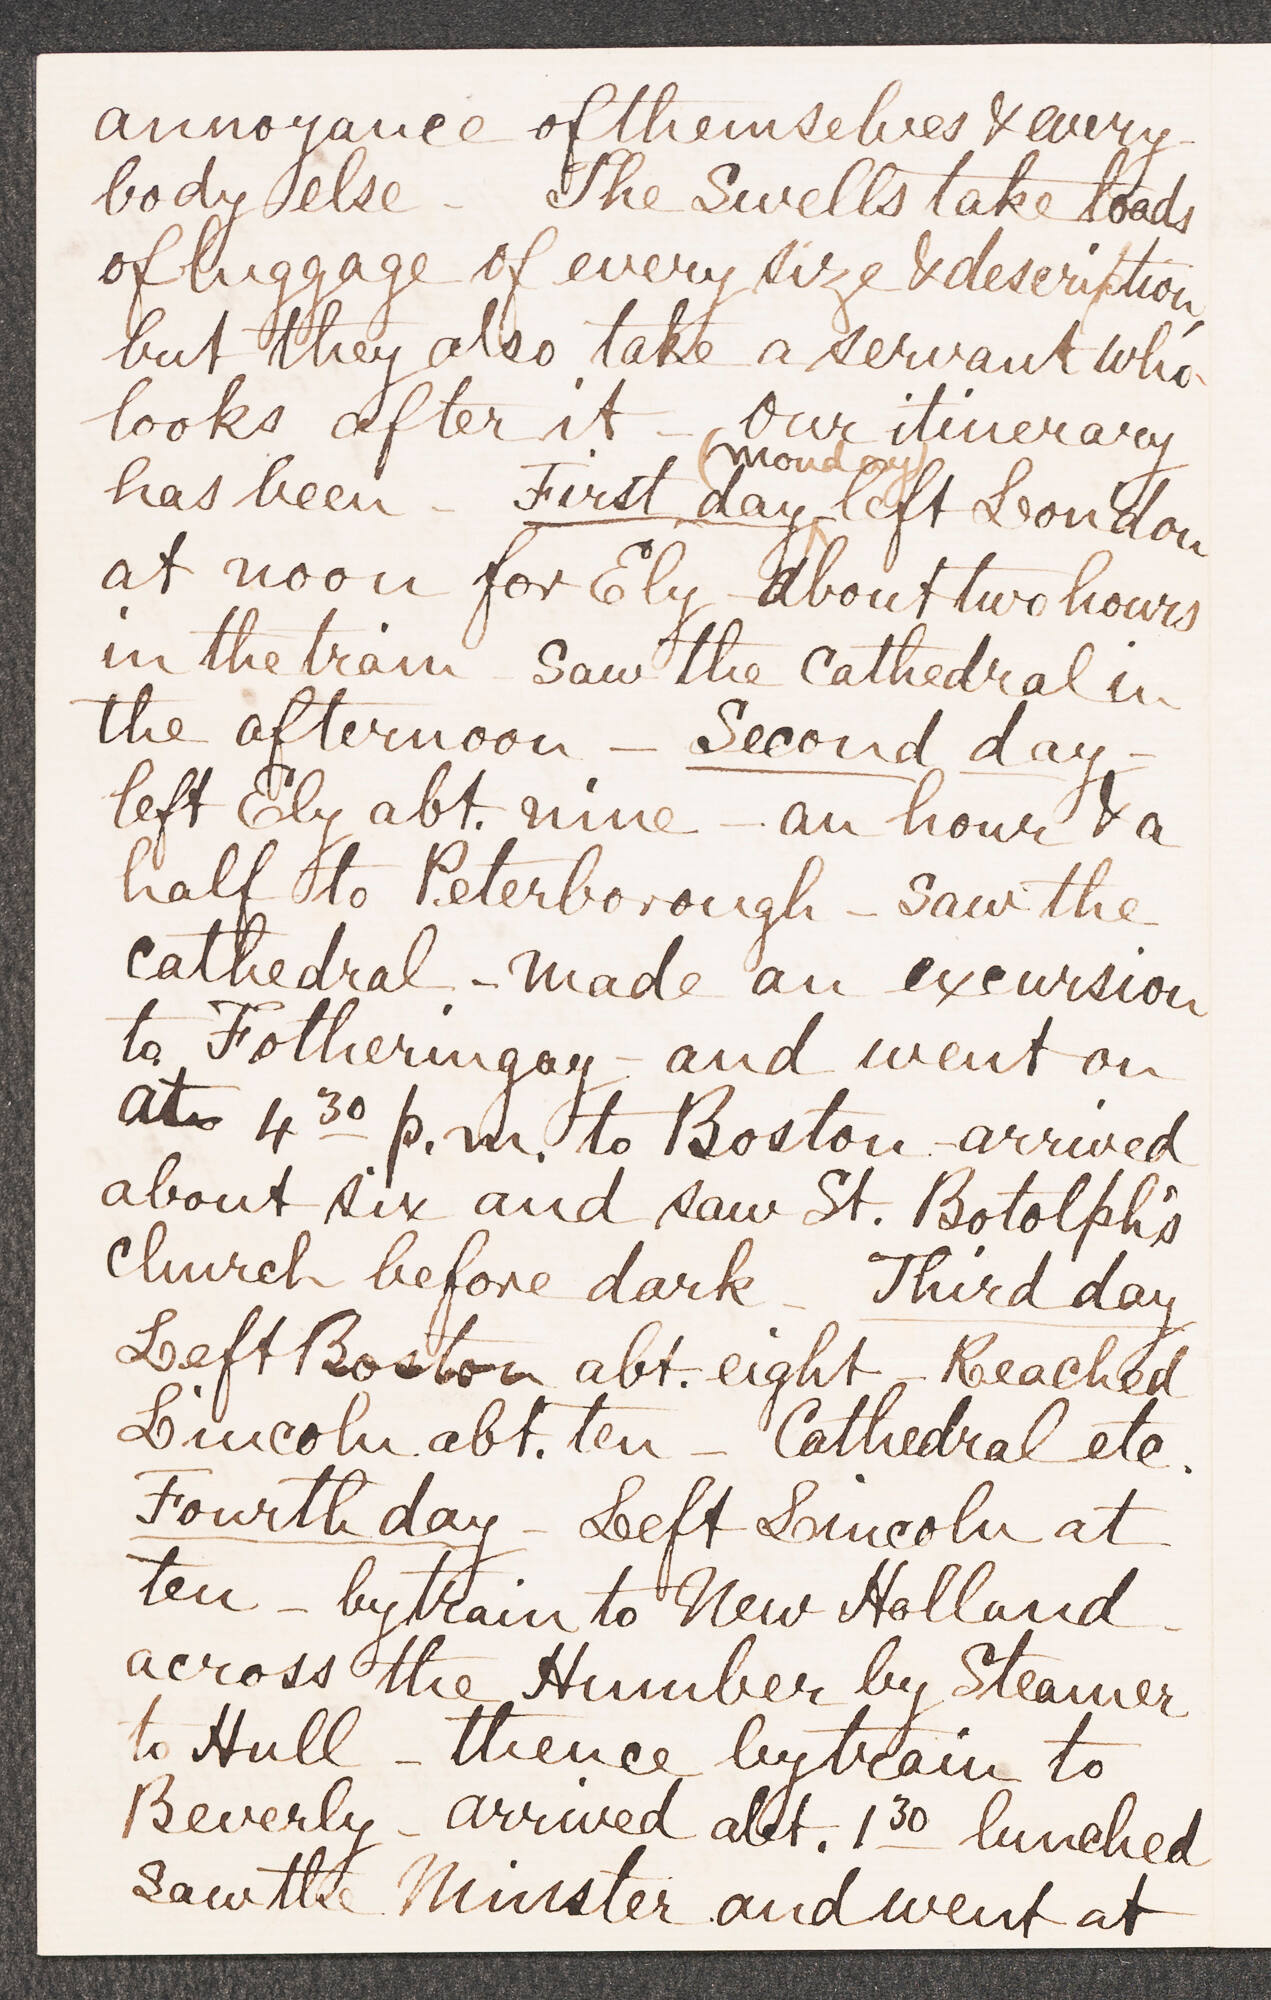 annoyance of themselves & every-
body else - The Swells take loads
of luggage of every size & description,
but they also take a servant who
looks after it - Our itinerary
has been - First day (Monday) left London
at noon for Ely - about two hours
in the train - Saw the Cathedral in
the afternoon - Second day -
left Ely abt. nine - an hour & a
half to Peterborough - Saw the
Cathedral - Made an excursion
to Fotheringay - and went on
at 4 30 p.m. to Boston - arrived
about six and saw St. Botolph's
Church before dark - Third day
Left Boston abt. eight - Reached
Lincoln abt. ten - Cathedral etc.
Fourth day - Left Lincoln at
ten - by train to New Holland -
across the Humber by Steamer
to Hull - thence by train to
Beverly - arrived abt. 1 30 lunched
Saw the Minster and went at